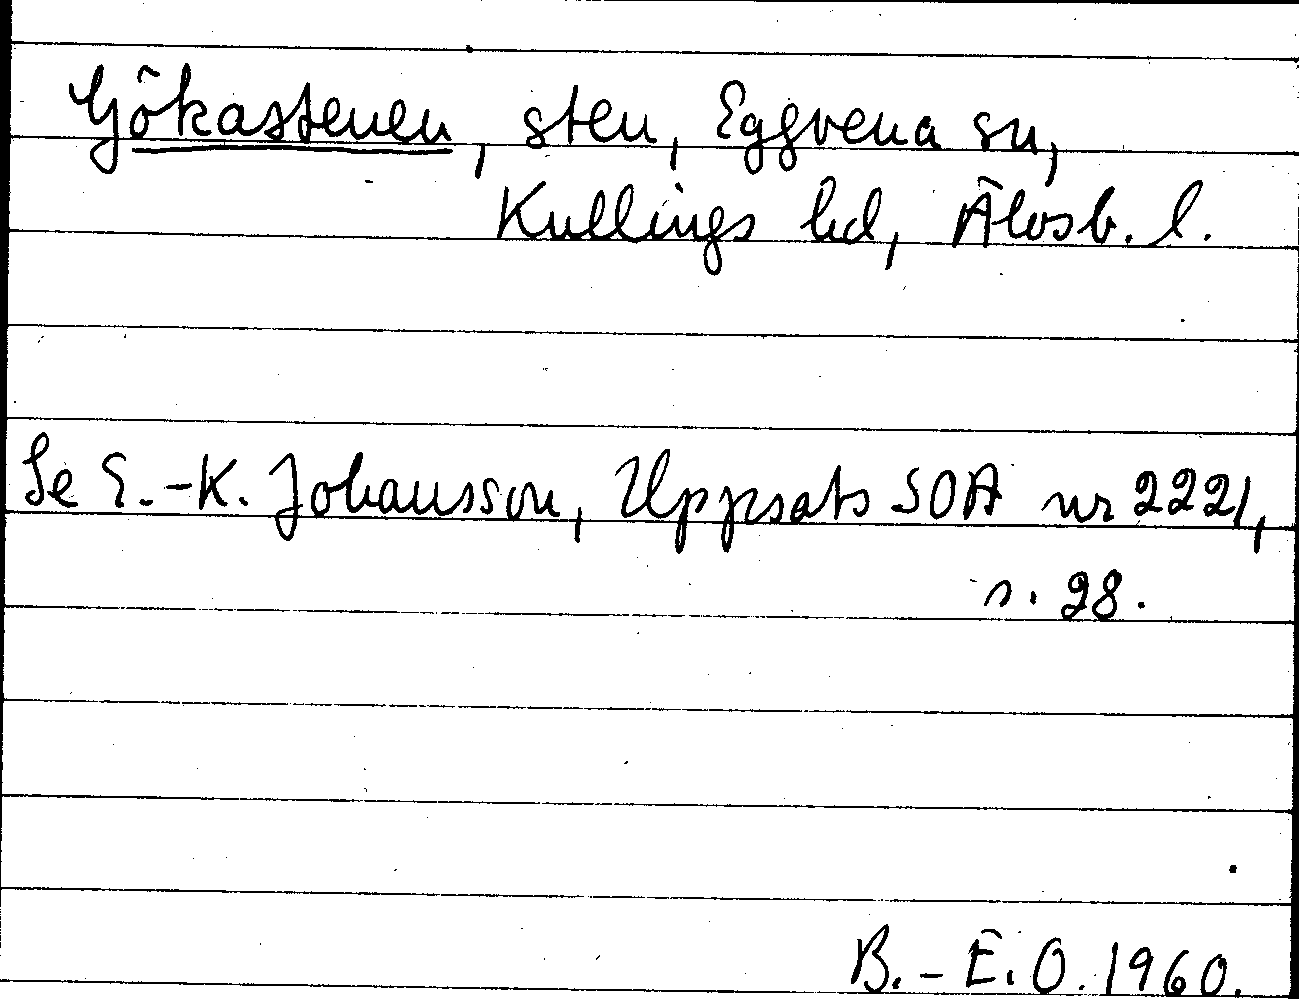 Gökastenen, sten, Eggvena sn,
Kullings hd, Älvsb. l.
Se E.-K. Johansson, Uppsats SOA nr 2221,
s. 28.
B.-E.O. 1960.